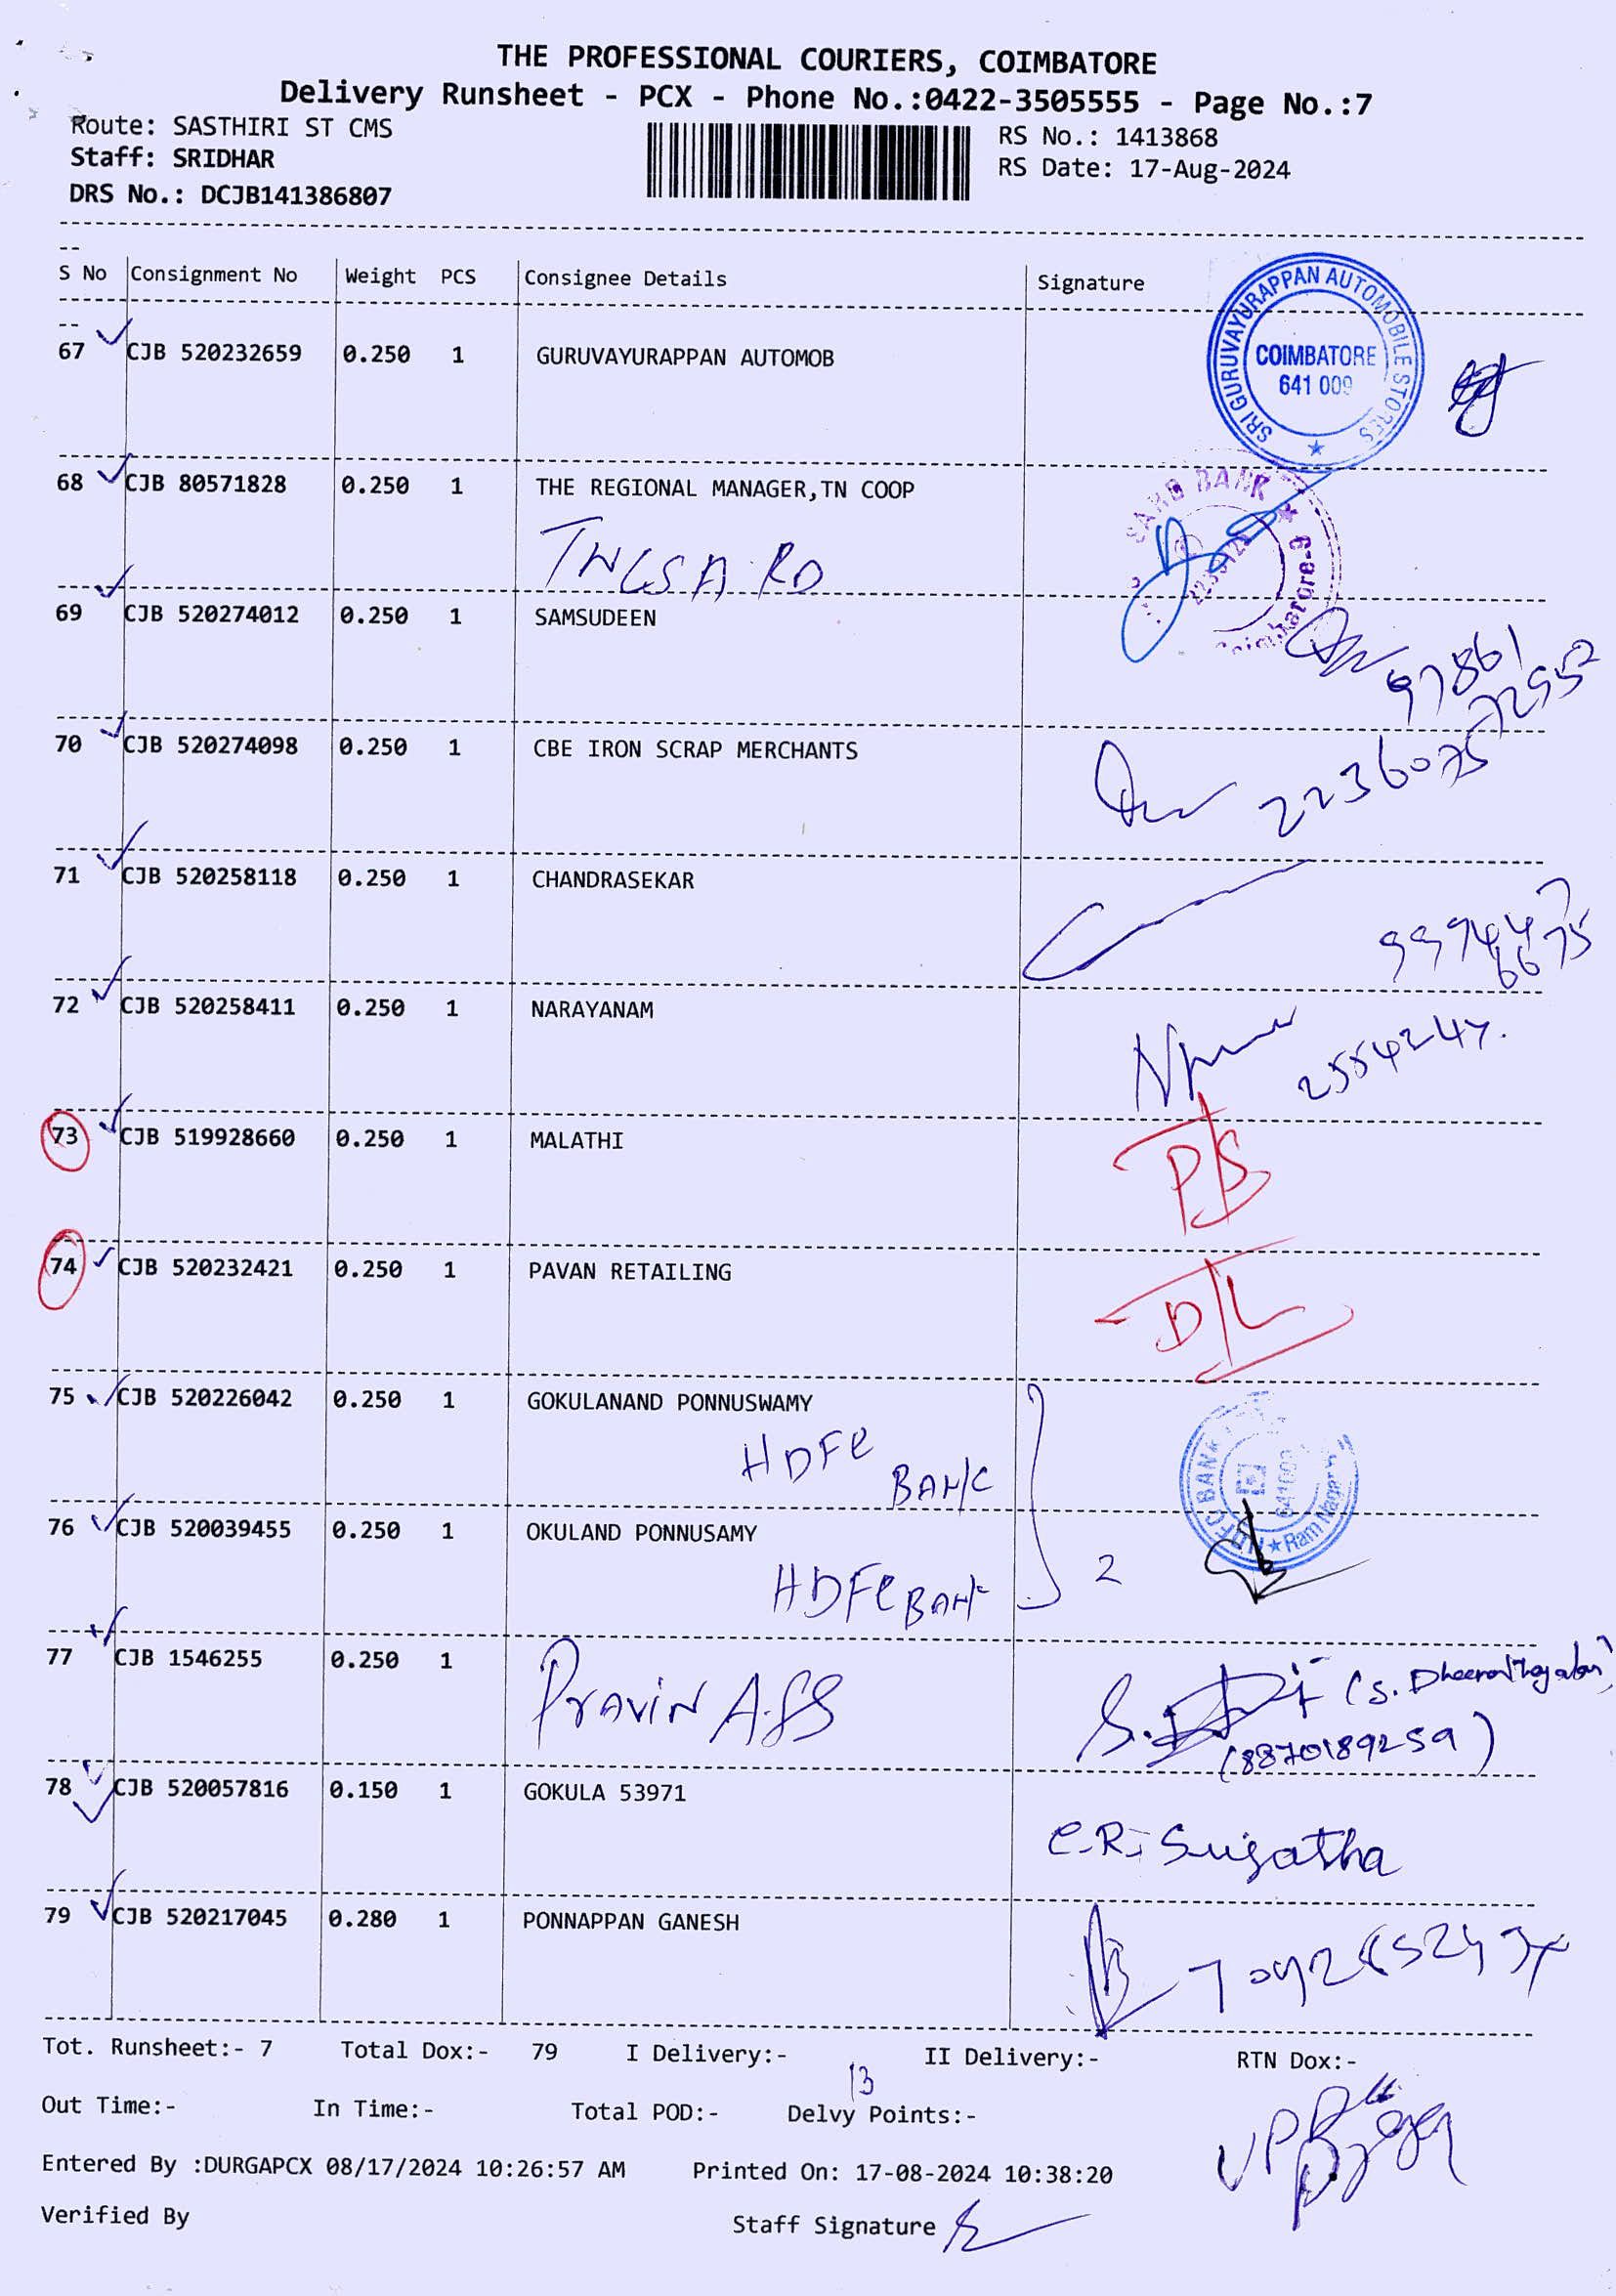 THE PROFESSIONAL COURIERS, COIMBATORE
Delivery Runsheet - PCX - Phone No.:0422-3505555 - Page No.:7
Route: SASTHIRI ST CMS
RS No.: 1413868
Staff: SRIDHAR
RS Date: 17-Aug-2024
DRS No.: DCJB141386807
S No Consignment No Weight PCS Consignee Details Signature
67 CJB 520232659 0.250 1 GURUVAYURAPPAN AUTOMOB
SRI GURUVAYURAPPAN AUTOMOBILE STORES
COIMBATORE
641 009
68 CJB 80571828 0.250 1 THE REGIONAL MANAGER,TN COOP
SARD BANK
Coimbatore-9
69 CJB 520274012 0.250 1 SAMSUDEEN
97861
72952
70 CJB 520274098 0.250 1 CBE IRON SCRAP MERCHANTS
2236075
71 CJB 520258118 0.250 1 CHANDRASEKAR
72 CJB 520258411 0.250 1 NARAYANAM
2554247.
73 CJB 519928660 0.250 1 MALATHI
74 CJB 520232421 0.250 1 PAVAN RETAILING
D/L
75 CJB 520226042 0.250 1 GOKULANAND PONNUSWAMY
HDFC BANK
HDFC BANK
641009
Ram Nagar
76 CJB 520039455 0.250 1 OKULAND PONNUSAMY
HDFC BANK
2
77 CJB 1546255 0.250 1 Pravin Ass
(8870189259)
78 CJB 520057816 0.150 1 GOKULA 53971
C.R. Sujatha
79 CJB 520217045 0.280 1 PONNAPPAN GANESH
Tot. Runsheet:- 7 Total Dox:- 79 I Delivery:- II Delivery:- RTN Dox:-
13
Out Time:- In Time:- Total POD:- Delvy Points:-
Entered By :DURGAPCX 08/17/2024 10:26:57 AM Printed On: 17-08-2024 10:38:20
Verified By Staff Signature